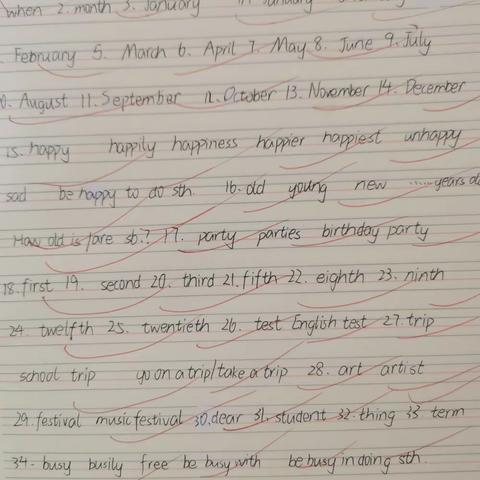 when 2. month 3. January in January
February 5. March 6. April 7. May 8. June 9. July
0. August 11. September 12. October 13. November 14. December
15. happy happily happiness happier happiest unhappy
sad be happy to do sth. 16. old young new ......years ol
How old is/are sb.? 17. party parties birthday party
18. first 19. second 20. third 21. fifth 22. eighth 23. ninth
24. twelfth 25. twentieth 26. test English test 27. trip
school trip go on a trip/take a trip 28. art artist
29. festival music festival 30. dear 31. student 32. thing 33 term
34. busy busily free be busy with be busy in doing sth.